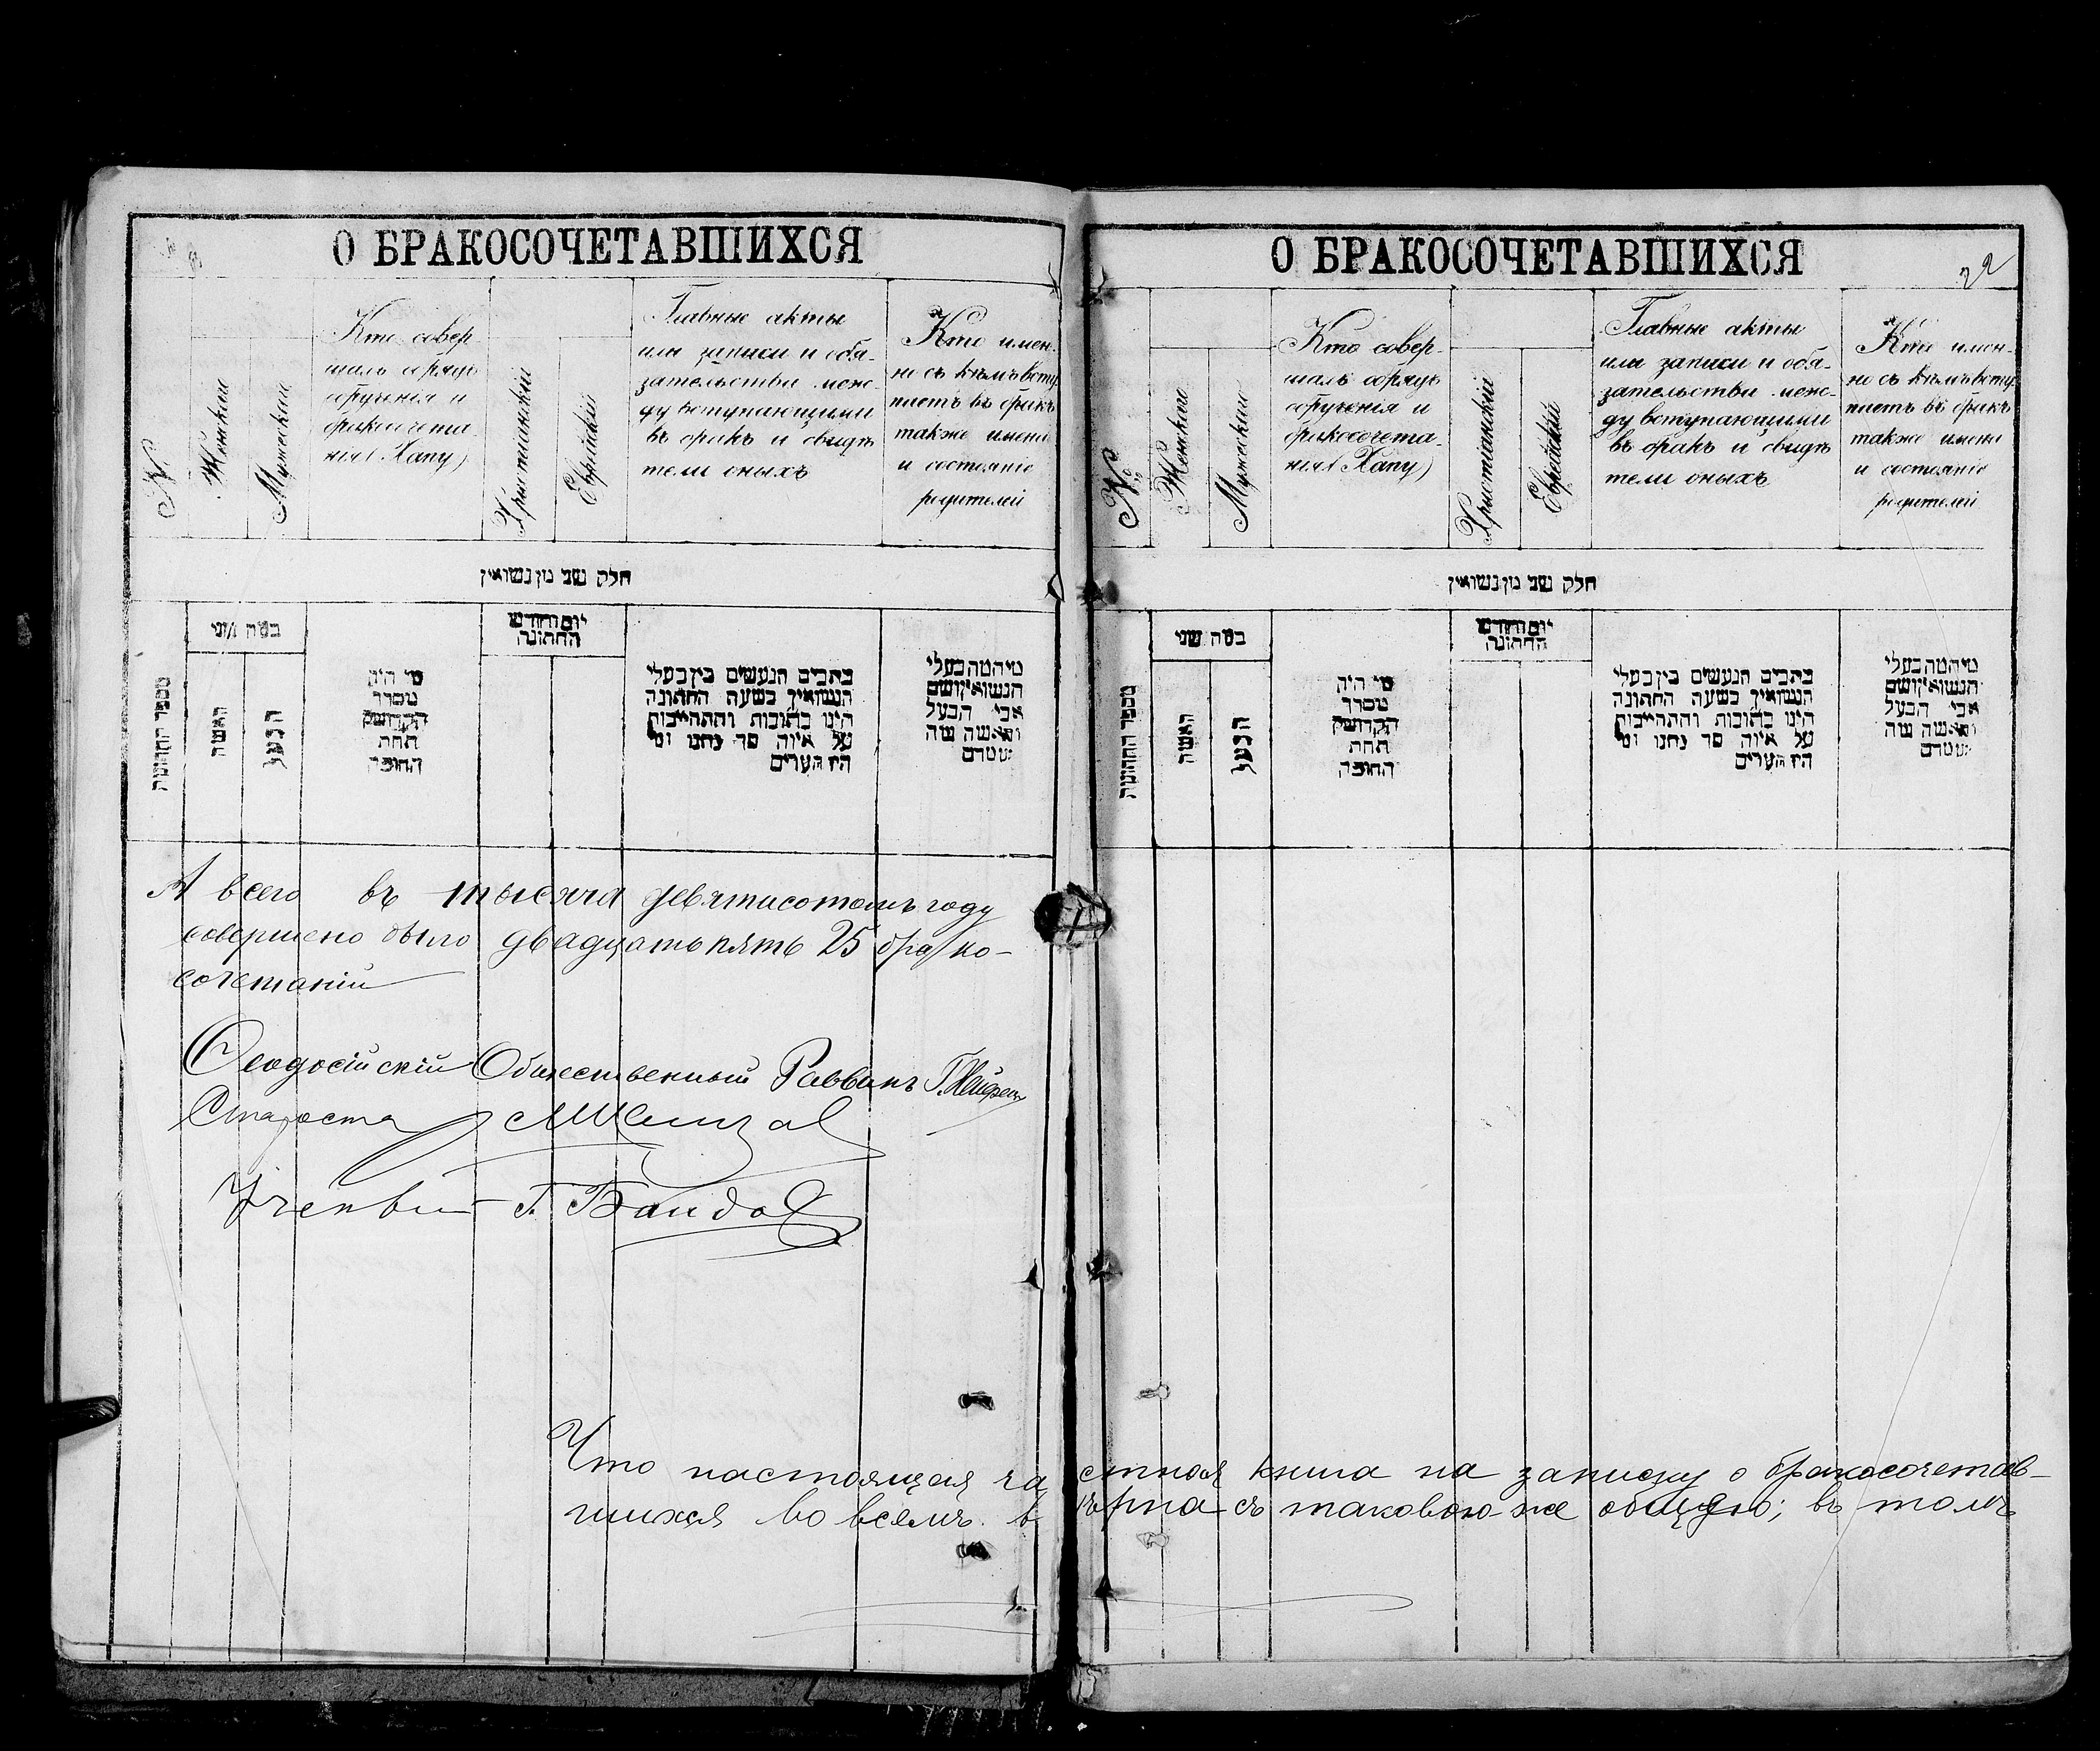 О БРАКОСОЧЕТАВШИХСЯ
№
Женскаго
Мужескаго
Кто совер-
шалъ обрядъ
обрученія и
бракосочета-
нія (Хапу)
Христіанскій
Еврейскій
Главные акты
или записи и обя-
зательства меж-
ду вступающими
въ бракъ и свидѣ
тели оныхъ
Кто имен-
но съ кѣмъ всту
паетъ въ бракъ
также имена
и состояніе
родителей
חלק שני מן נשואין
מספר החתונה
כמה שני
האשה
הבעל
מי היה
מסדר
הקדושין
תחת
החופה
יום וחודש
החתונה
כתבים הנעשים בין בעלי
הנשואין בשעת החתונה
היינו כתובות והתחייבות
על איזה סך נתנו ומי
היו הערים
מי המה בעלי
הנשואין ושם
אבי הבעל
והאשה ומה
А всего въ тысяча девятисотомъ году
совершено было двадцать пять 25 брако-
сочетаній
Ѳеодосійскій Общественный Раввинъ
Староста
Г.
О БРАКОСОЧЕТАВШИХСЯ
22
№
Женскаго
Мужескаго
Кто совер-
шалъ обрядъ
обрученія и
бракосочета-
нія (Хапу)
Христіанскій
Еврейскій
Главные акты
или записи и обя-
зательства меж-
ду вступающими
въ бракъ и свидѣ
тели оныхъ
Кто имен-
но съ кѣмъ всту
паетъ въ бракъ
также имена
и состояніе
родителей
חלק שני מן נשואין
מספר החתונה
כמה שני
האשה
הבעל
מי היה
מסדר
הקדושין
תחת
החופה
יום וחודש
החתונה
כתבים הנעשים בין בעלי
הנשואין בשעת החתונה
היינו כתובות והתחייבות
על איזה סך נתנו ומי
היו הערים
מי המה בעלי
הנשואין ושם
אבי הבעל
והאשה ומה
Что настоящая частная книга на записку о бракосочетав-
шихся во всемъ вѣрна съ таковою-же общею; въ томъ